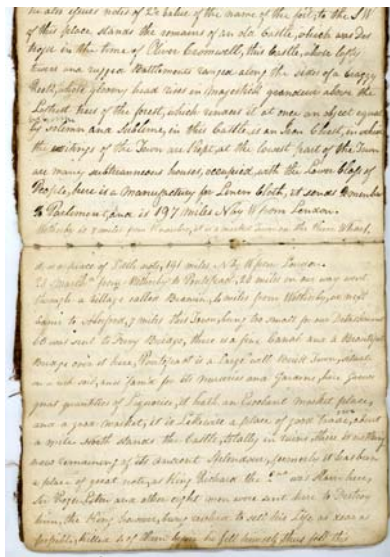 of this place stands the remains of an old Castle, which was Des
in the time of Oliver Cromwell, this Castle, whose lofty
towers and rugged Battlements ranged along the sides of a Craggy
Rock, whose gloomy head rises in Majestick grandeur above the
Loftiest trees of the forest, which renders it at once an object equal
by solemn and Sublime, in this Castle, is an Iron Chest, in which
the writings of the Town are Kept, at the lowest part of the Town
are many subterraneous houses, occupied, with the Lower Class of
People, here is a Manufactory for Linen Cloth, it sends 2 member
to Parliment, and is 197 miles N by W from London.
Wetherby is 7 miles from it is a market town on the River Wharf,
a place of Little note, 191 miles N by W from London.
21 March from Wetherby to Pontefract, 20 miles in our way went
through a village called 4 miles from Wetherby, we next
came to 7 miles this Town being too small for our Detachment
60 was sent to Ferry Bridge, there is a fine Canal and a Beautiful
Bridge over it here, Pontefract is a Large well Built Town, situate
on a rich soil, and fam'd for its nurseries and Gardens, here Grows
great quantities of Liquorice, it hath an Excelent market place,
and a good market, it is Likewise a place of good trade, about
a mile North stands the Castle, totally in ruins there is nothing
now remaining of its Ancient Splendour, formerly it has been
a place of great note, as King Richard the 2nd was Slain here,
Sir and other eight men were sent here to Destroy
him, the King however, being resolved to sell his Life as dear as
possible, killed 4 of them before he fell himself, thus fell this